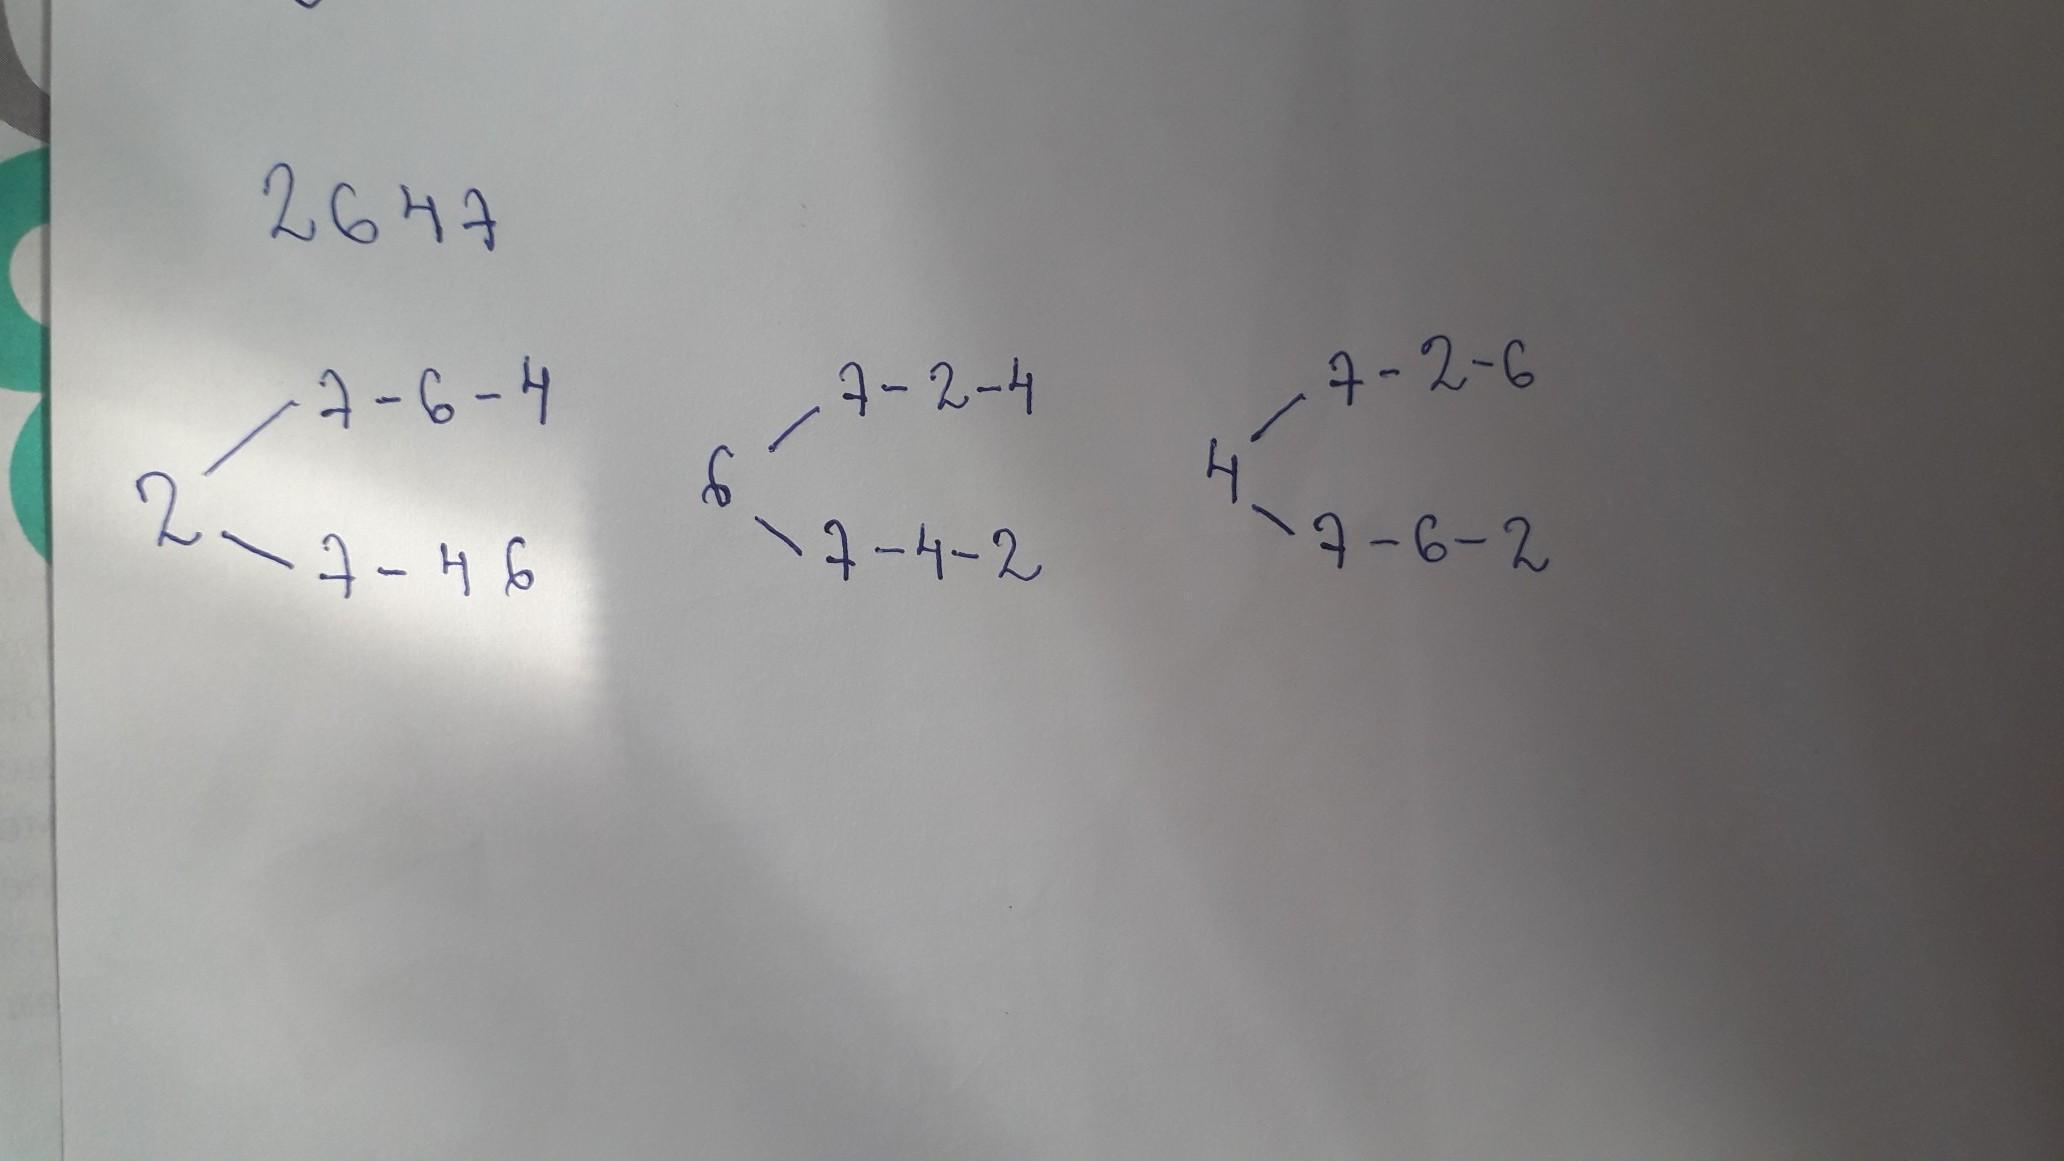 2647
7-6-4
2
7-4 6
7-2-4
6
7-4-2
7-2-6
4
7-6-2